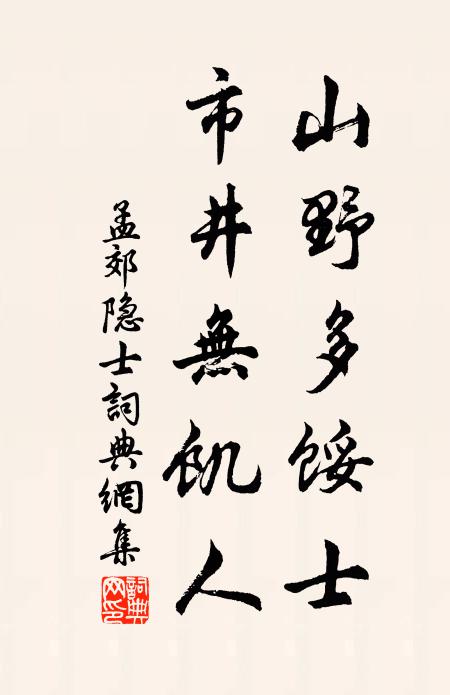 山野多餒士
市井無飢人
孟郊隐士詞典網集
詞典
网印